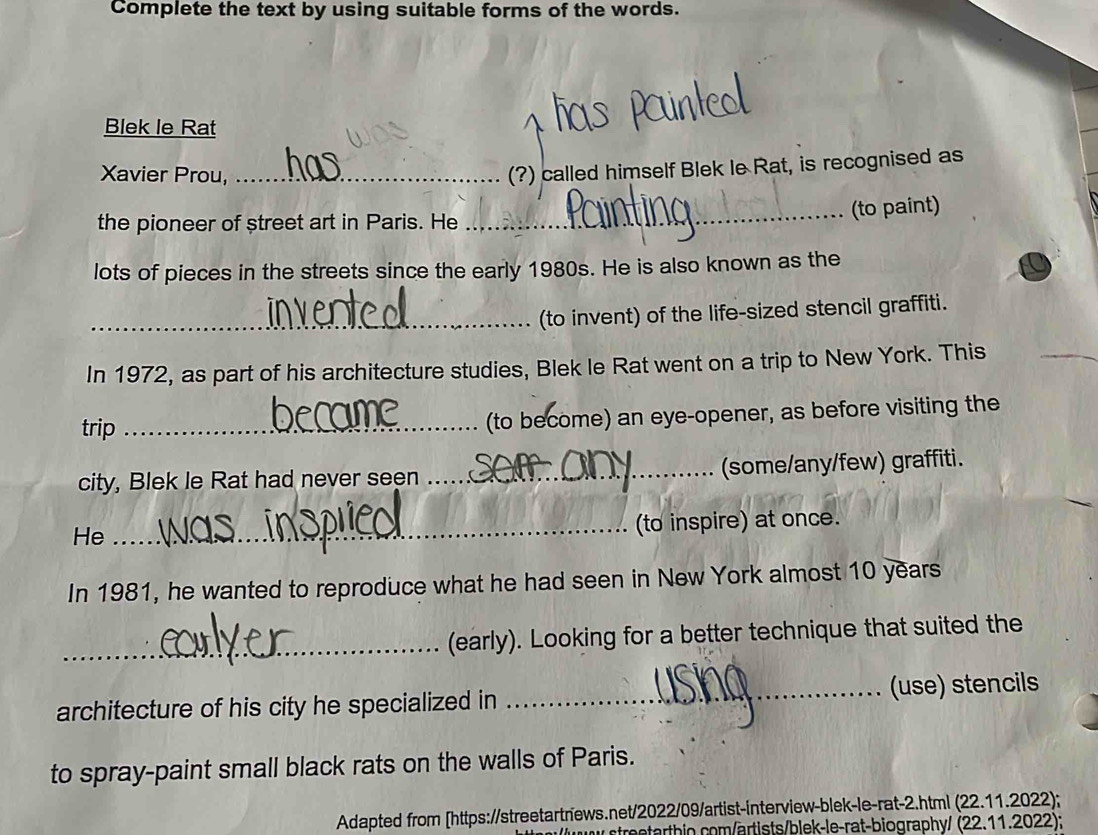 Complete the text by using suitable forms of the words.
has painted
Blek le Rat
was
Xavier Prou, ......has........................ (?) called himself Blek le Rat, is recognised as
the pioneer of street art in Paris. He ............Painting.................. (to paint)
lots of pieces in the streets since the early 1980s. He is also known as the
....................invented.................. (to invent) of the life-sized stencil graffiti.
In 1972, as part of his architecture studies, Blek le Rat went on a trip to New York. This
trip ..................became.................. (to become) an eye-opener, as before visiting the
city, Blek le Rat had never seen ......any............ (some/any/few) graffiti.
He ......was inspiied.............................. (to inspire) at once.
In 1981, he wanted to reproduce what he had seen in New York almost 10 years
............earlyer.................. (early). Looking for a better technique that suited the
architecture of his city he specialized in ..................using.................. (use) stencils
to spray-paint small black rats on the walls of Paris.
Adapted from [https://streetartnews.net/2022/09/artist-interview-blek-le-rat-2.html (22.11.2022);
streetartbio.com/artists/blek-le-rat-biography/ (22.11.2022);